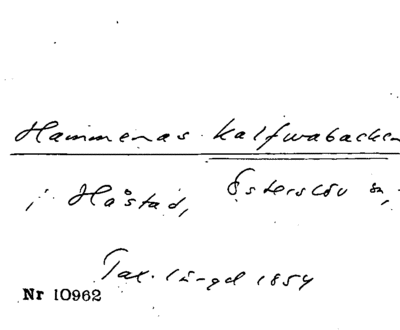 Hammenas Kalfwabacken
i Håstad, Österslöv sn,
Tax. längd 1854
Nr 10962